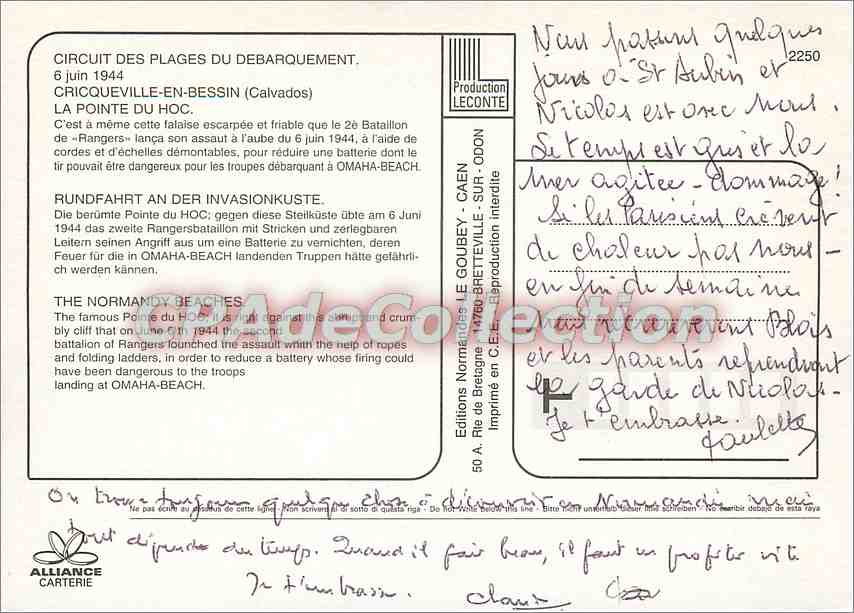 CIRCUIT DES PLAGES DU DEBARQUEMENT.
6 juin 1944
CRICQUEVILLE-EN-BESSIN (Calvados)
LA POINTE DU HOC.
C'est à même cette falaise escarpée et friable que le 2è Bataillon
de «Rangers» lança son assaut à l'aube du 6 juin 1944, à l'aide de
cordes et d'échelles démontables, pour réduire une batterie dont le
tir pouvait être dangereux pour les troupes débarquant à OMAHA-BEACH.
RUNDFAHRT AN DER INVASIONKUSTE.
Die berümte Pointe du HOC; gegen diese Steilküste übte am 6 Juni
1944 das zweite Rangersbataillon mit Stricken und zerlegbaren
Leitern seinen Angriff aus um eine Batterie zu vernichten, deren
Feuer für die in OMAHA-BEACH landenden Truppen hätte gefährli-
ch werden kännen.
THE NORMANDY BEACHES
The famous Pointe du HOC; it is right against this abrupt and crum-
bly cliff that on June 6 th 1944 the second
battalion of Rangers lounched the assault whith the help of ropes
and folding ladders, in order to reduce a battery whose firing could
have been dangerous to the troops
landing at OMAHA-BEACH.
Production
LECONTE
Editions Normandes LE GOUBEY - CAEN
50 A. Rte de Bretagne - 14760 BRETTEVILLE - SUR - ODON
Imprimé en C.E.E. - Reproduction interdite
2250
Nous passons quelques
jours à St Aubin et
Nicolas est avec nous.
Le temps est gris et la
mer agitée - dommage!
Si les Parisiens crèvent
de chaleur pas nous -
en fin de semaine
nous Blois
et les parents reprendront
la garde de Nicolas -
Je t'embrasse.
Paulette
CPAdeCollection
On trouve toujours quelque chose à découvrir en Normandie mais
Ne pas écrire au dessous de cette ligne - Non scrivere al di sotto di questa riga - Do not Write below this line - Bitte nicht unterhalb dieser linie schreiben - No escribir debajo de esta raya
tout dépend du temps. Quand il fait beau, il faut en profiter vite
Je t'embrasse.
ALLIANCE
CARTERIE